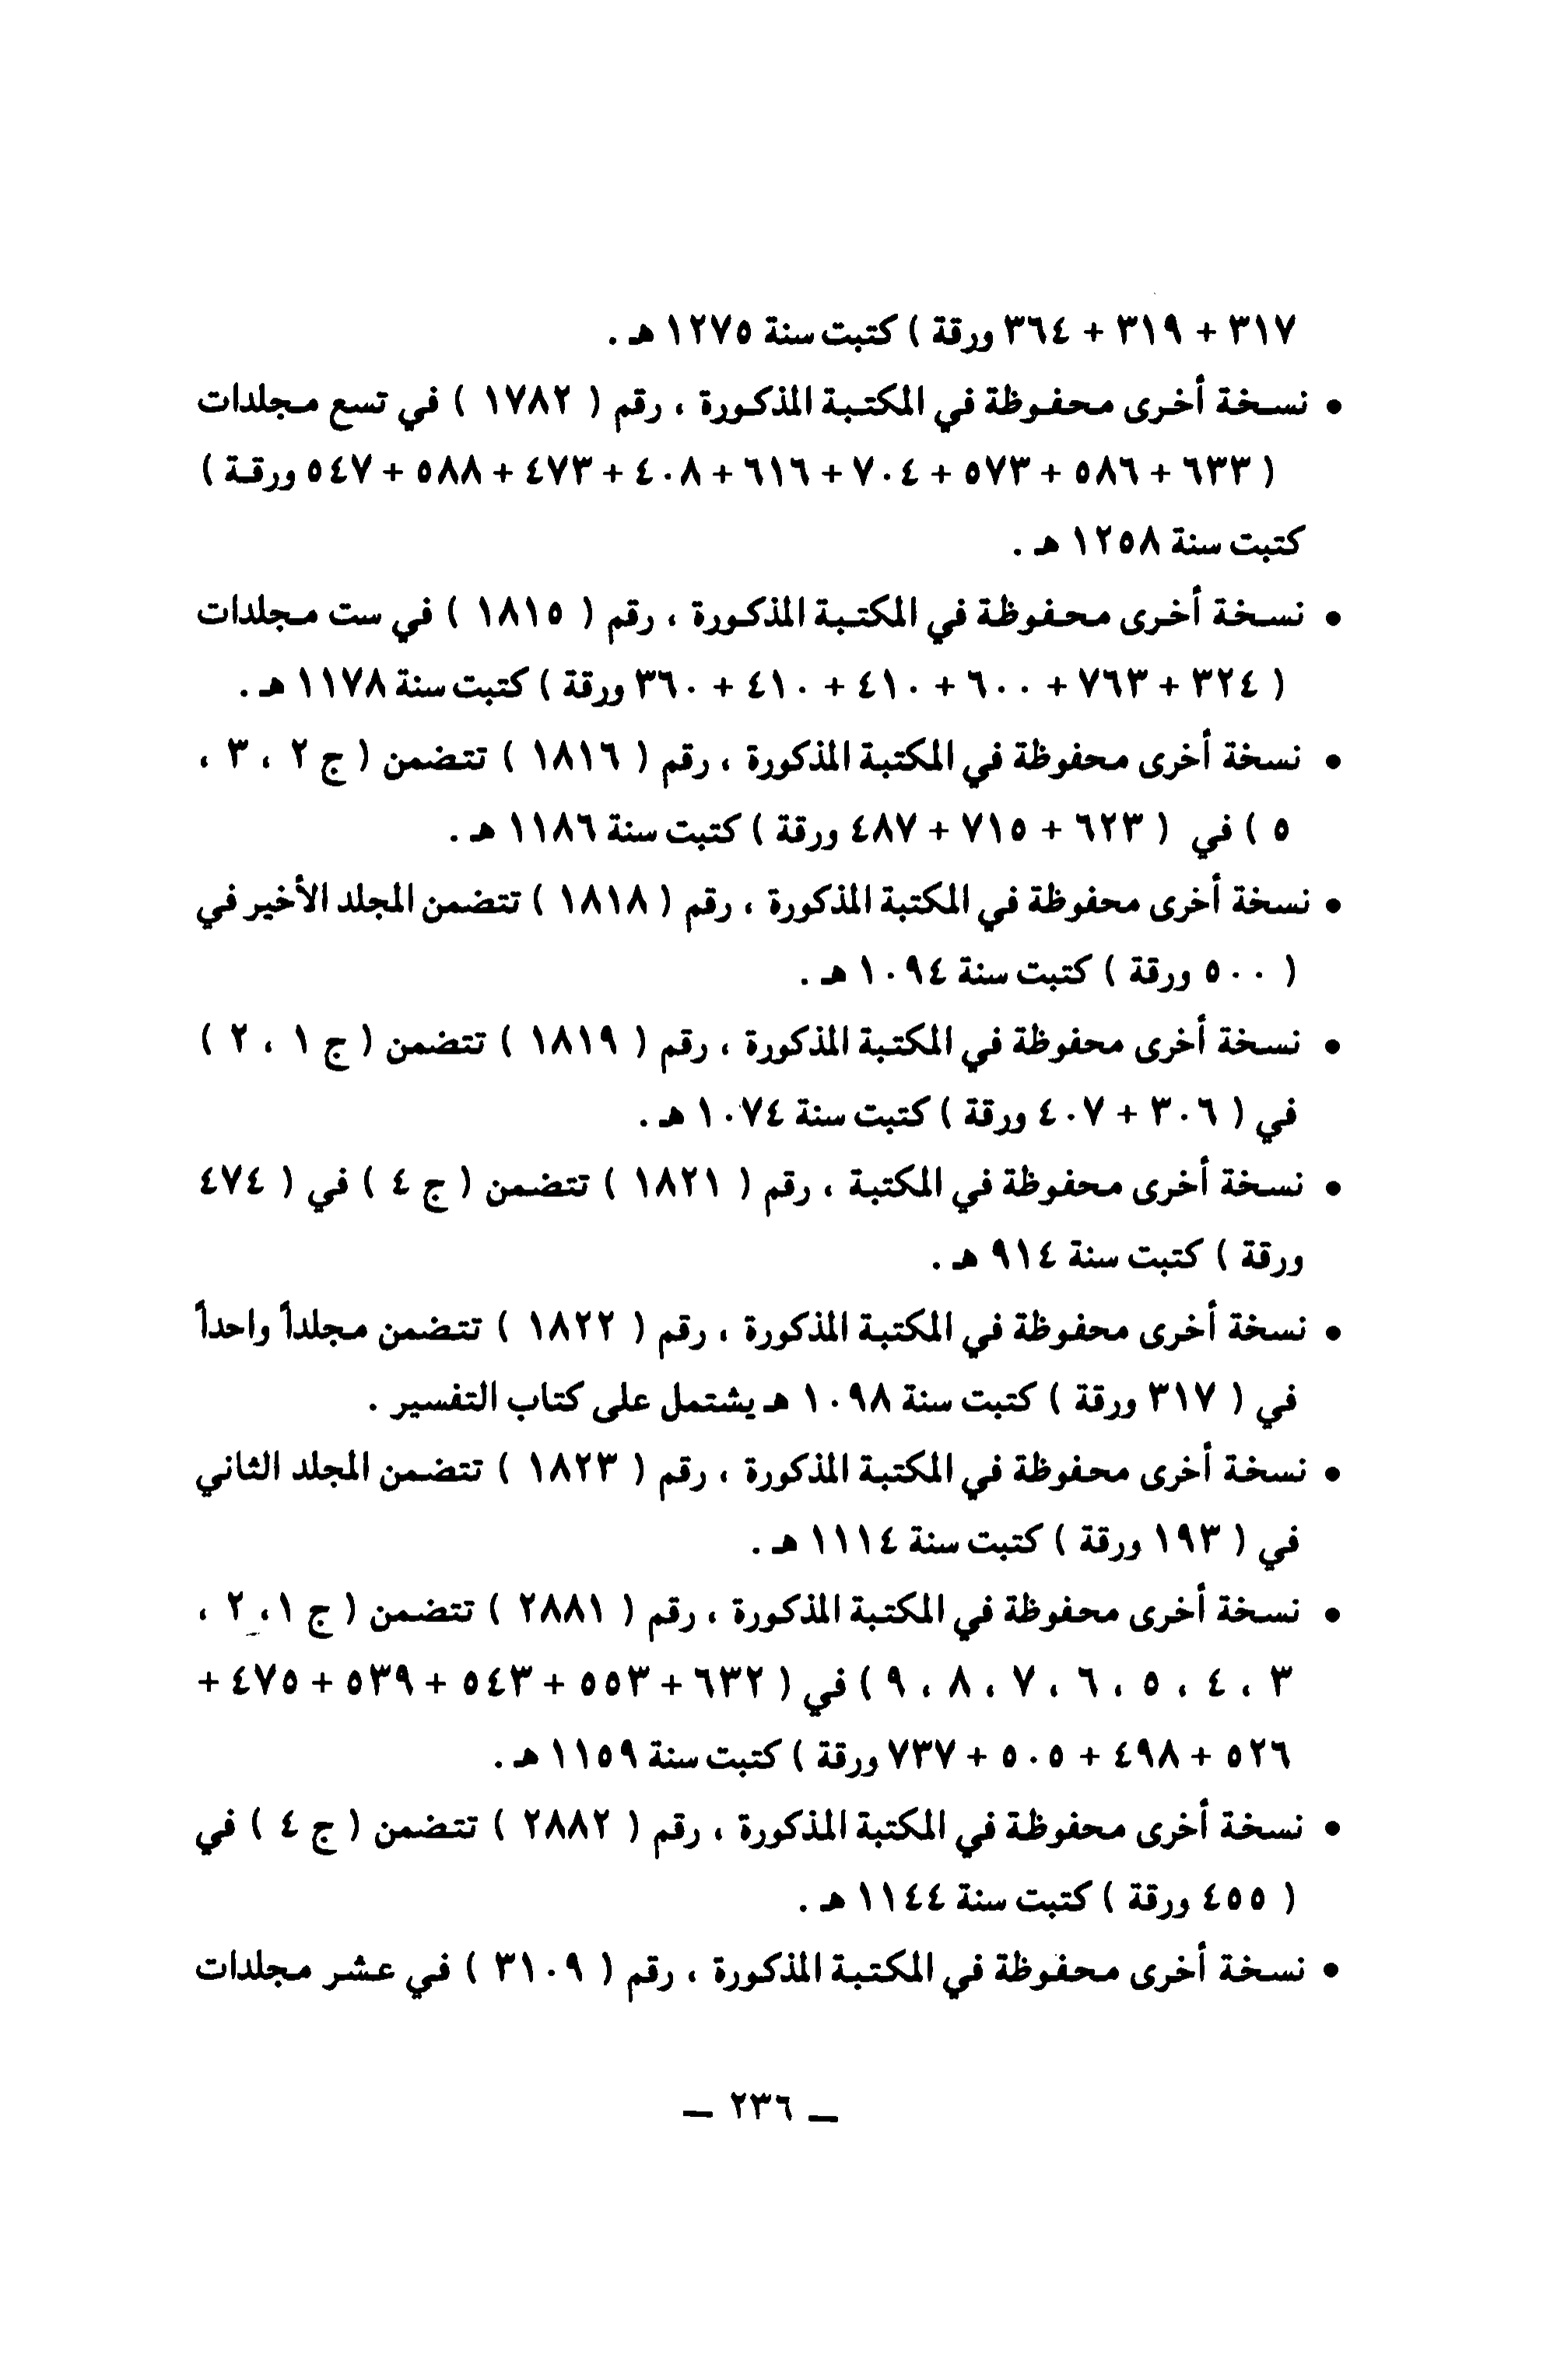 ٣١٧ + ٣١٩ + ٣٦٤ ورقة ) كتبت سنة ١٢٧٥ هـ .
• نسخة أخرى محفوظة في المكتبة المذكورة ، رقم ( ١٧٨٢ ) في تسع مجلدات
( ٦٣٣ + ٥٨٦ + ٥٧٣ + ٧٠٤ + ٦١٦ + ٤٠٨ + ٤٧٣ + ٥٨٨ + ٥٤٧ ورقة )
كتبت سنة ١٢٥٨ هـ .
• نسخة أخرى محفوظة في المكتبة المذكورة ، رقم ( ١٨١٥ ) في ست مجلدات
( ٣٢٤ + ٧٦٣ + ٦٠٠ + ٤١٠ + ٤١٠ + ٣٦٠ ورقة ) كتبت سنة ١١٧٨ هـ .
• نسخة أخرى محفوظة في المكتبة المذكورة ، رقم ( ١٨١٦ ) تتضمن ( ج ٢ ، ٣ ،
٥ ) في ( ٦٢٣ + ٧١٥ + ٤٨٧ ورقة ) كتبت سنة ١١٨٦ هـ .
• نسخة أخرى محفوظة في المكتبة المذكورة ، رقم ( ١٨١٨ ) تتضمن المجلد الأخير في
( ٥٠٠ ورقة ) كتبت سنة ١٠٩٤ هـ .
• نسخة أخرى محفوظة في المكتبة المذكورة ، رقم ( ١٨١٩ ) تتضمن ( ج ١ ، ٢ )
في ( ٣٠٦ + ٤٠٧ ورقة ) كتبت سنة ١٠٧٤ هـ .
• نسخة أخرى محفوظة في المكتبة ، رقم ( ١٨٢١ ) تتضمن ( ج ٤ ) في ( ٤٧٤
ورقة ) كتبت سنة ٩١٤ هـ .
• نسخة أخرى محفوظة في المكتبة المذكورة ، رقم ( ١٨٢٢ ) تتضمن مجلداً واحداً
في ( ٣١٧ ورقة ) كتبت سنة ١٠٩٨ هـ يشتمل على كتاب التفسير .
• نسخة أخرى محفوظة في المكتبة المذكورة ، رقم ( ١٨٢٣ ) تتضمن المجلد الثاني
في ( ١٩٣ ورقة ) كتبت سنة ١١١٤ هـ .
• نسخة أخرى محفوظة في المكتبة المذكورة ، رقم ( ٢٨٨١ ) تتضمن ( ج ١، ٢ ،
٣ ، ٤ ، ٥ ، ٦ ، ٧ ، ٨ ، ٩ ) في ( ٦٣٢ + ٥٥٣ + ٥٤٣ + ٥٣٩ + ٤٧٥ +
٥٢٦ + ٤٩٨ + ٥٠٥ + ٧٣٧ ورقة ) كتبت سنة ١١٥٩ هـ .
• نسخة أخرى محفوظة في المكتبة المذكورة ، رقم ( ٢٨٨٢ ) تتضمن ( ج ٤ ) في
( ٤٥٥ ورقة ) كتبت سنة ١١٤٤ هـ .
• نسخة أخرى محفوظة في المكتبة المذكورة ، رقم ( ٣١٠٩ ) في عشر مجلدات
ـ ٢٣٦ ـ